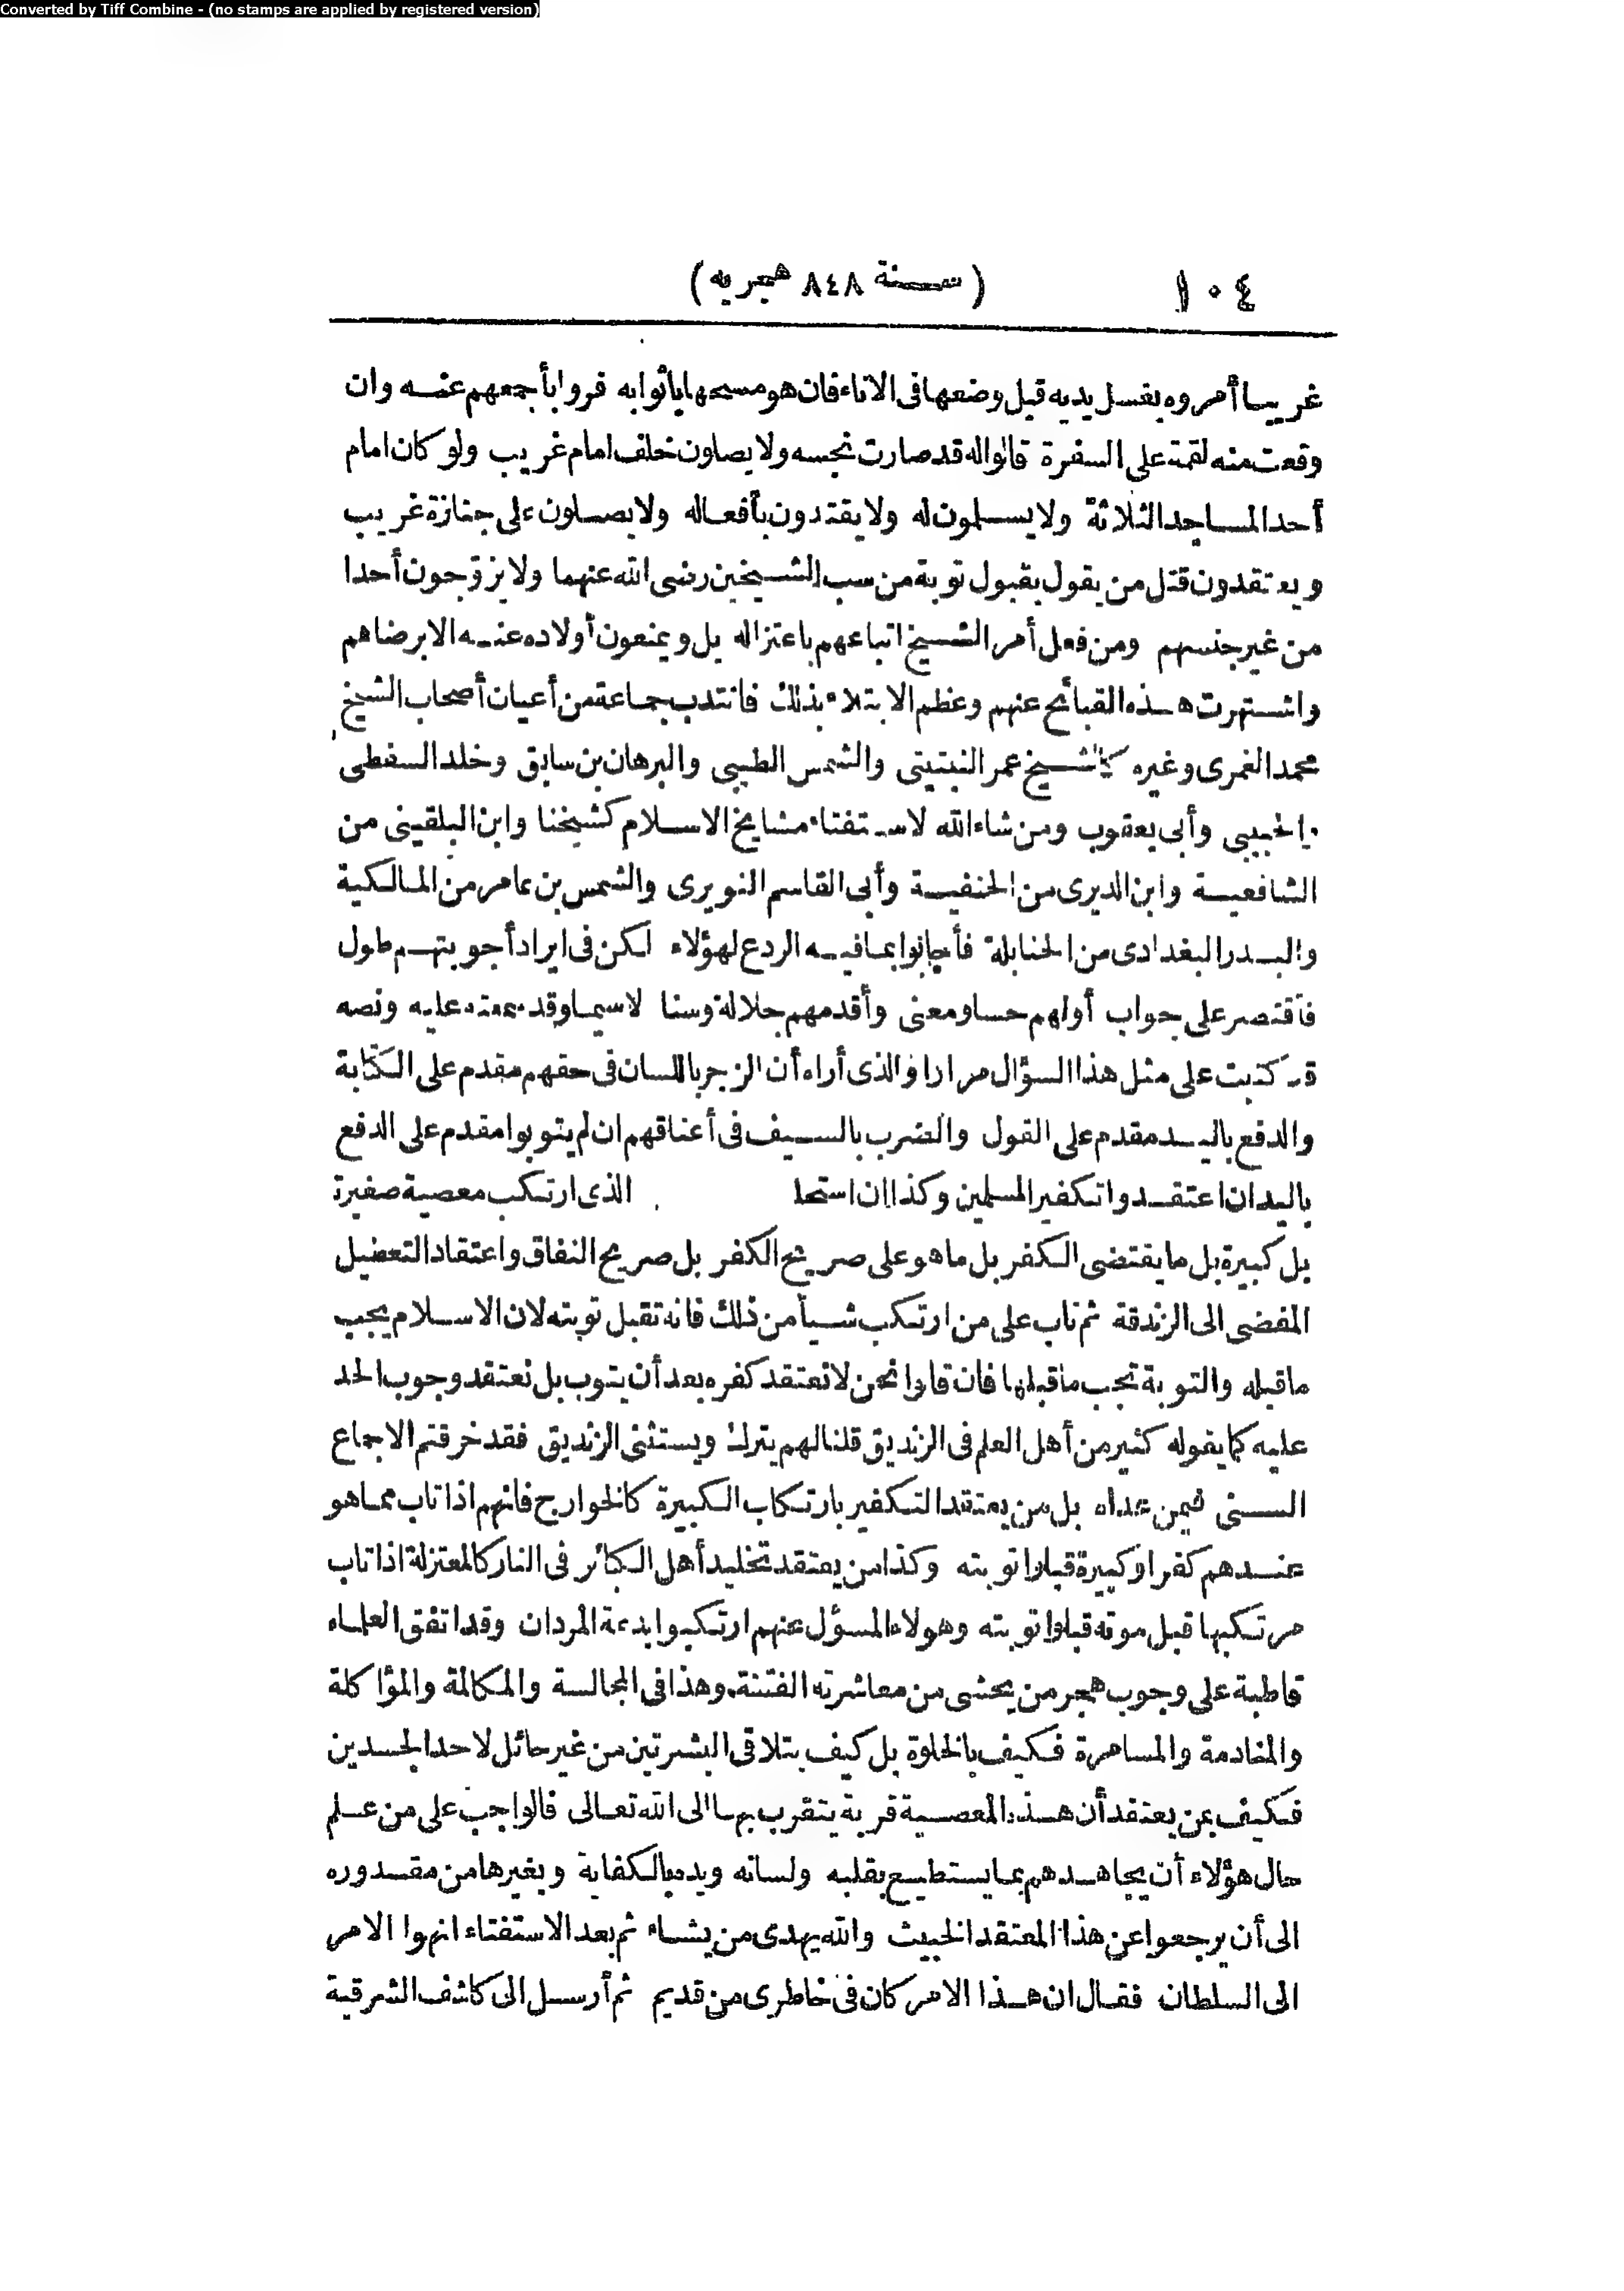 Converted by Tiff Combine - (no stamps are applied by registered version)
١٠٤ (سنة ٨٤٨ هجريه)
غريبا أمروه بغسل يديه قبل وضعها فى الاناء فان هو مسحها بأثوابه فروا بأجمعهم عنه وان
وقعت منه لقمة على السفرة قالوا له قد صارت نجسه ولا يصلون خلف امام غريب ولو كان امام
أحد المساجد الثلاثة ولا يسلمون له ولا يقتدون بأفعاله ولا يصلون على جنازة غريب
ويعتقدون قتل من يقول بقبول توبة من سب الشيخين رضى الله عنهما ولا يزوّجون أحدا
من غير جنسهم ومن فعل أمر الشيخ اتباعهم باعتزاله بل ويمنعون أولاده عنه الا برضاهم
واشتهرت هذه القبائح عنهم وعظم الابتلاء بذلك فانتدب جماعة من أعيان أصحاب الشيخ
محمد الغمرى وغيره كالشيخ عمر النبتيتى والشمس الطيبى والبرهان بن سابق وخلد السفطى
والحبيبى وأبى يعقوب ومن شاء الله لاستفتاء مشايخ الاسلام كشيخنا وابن البلقينى من
الشافعية وابن الديرى من الحنفية وأبى القاسم النويرى والشمس بن عامر من المالكية
والبدر البغدادى من الحنابلة فأجابوا بما فيه الردع لهؤلاء لكن فى ايراد أجوبتهم طول
فأقتصر على جواب أولهم حسا ومعنى وأقدمهم جلالة وسنا لاسيما وقد سمعته عليه ونصه
قد كتبت على مثل هذا السؤال مرارا والذى أراه أن الزجر باللسان فى حقهم مقدم على الكتابة
والدفع باليد مقدم على القول والضرب بالسيف فى أعناقهم ان لم يتوبوا مقدم على الدفع
باليد ان اعتقدوا تكفير المسلمين وكذا ان استحلـ الذى ارتكب معصية صغيرة
بل كبيرة بل ما يقتضى الكفر بل ما هو على صريح الكفر بل صريح النفاق واعتقاد التعضيل
المفضى الى الزندقة ثم تاب على من ارتكب شيأ من ذلك فانه تقبل توبته لان الاسلام يجب
ما قبله والتوبة تجب ما قبلها فان قالوا نحن لا نعتقد كفره بعد أن يتوب بل نعتقد وجوب الحد
عليه كما يقوله كثير من أهل العلم فى الزنديق قلنا لهم يترك ويستثنى الزنديق فقد خرقتم الاجماع
السنى فيمن عداه بل من يعتقد التكفير بارتكاب الكبيرة كالخوارج فانهم اذا تاب مما هو
عندهم كفر أو كبيرة قبلوا توبته وكذا من يعتقد تخليد أهل الكبائر فى النار كالمعتزلة اذا تاب
مرتكبها قبل موته قبلوا توبته وهولاء المسؤل عنهم ارتكبوا بدعة المردان وقد اتفق العلماء
قاطبة على وجوب هجر من يخشى من معاشرته الفتنة وهذا فى المجالسة والمكالمة والمؤاكلة
والمنادمة والمسامرة فكيف بالخلوة بل كيف بتلاقى البشرتين من غير حائل لاحد الجسدين
فكيف بمن يعتقد أن هذه المعصية قربة يتقرب بها الى الله تعالى فالواجب على من علم
حال هؤلاء أن يجاهدهم بما يستطيع بقلبه ولسانه ويده بالكفاية وبغيرها من مقدوره
الى أن يرجعوا عن هذا المعتقد الخبيث والله يهدى من يشاء ثم بعد الاستفتاء انهوا الامر
الى السلطان فقال ان هذا الامر كان فى خاطرى من قديم ثم أرسل الى كاشف الشرقية